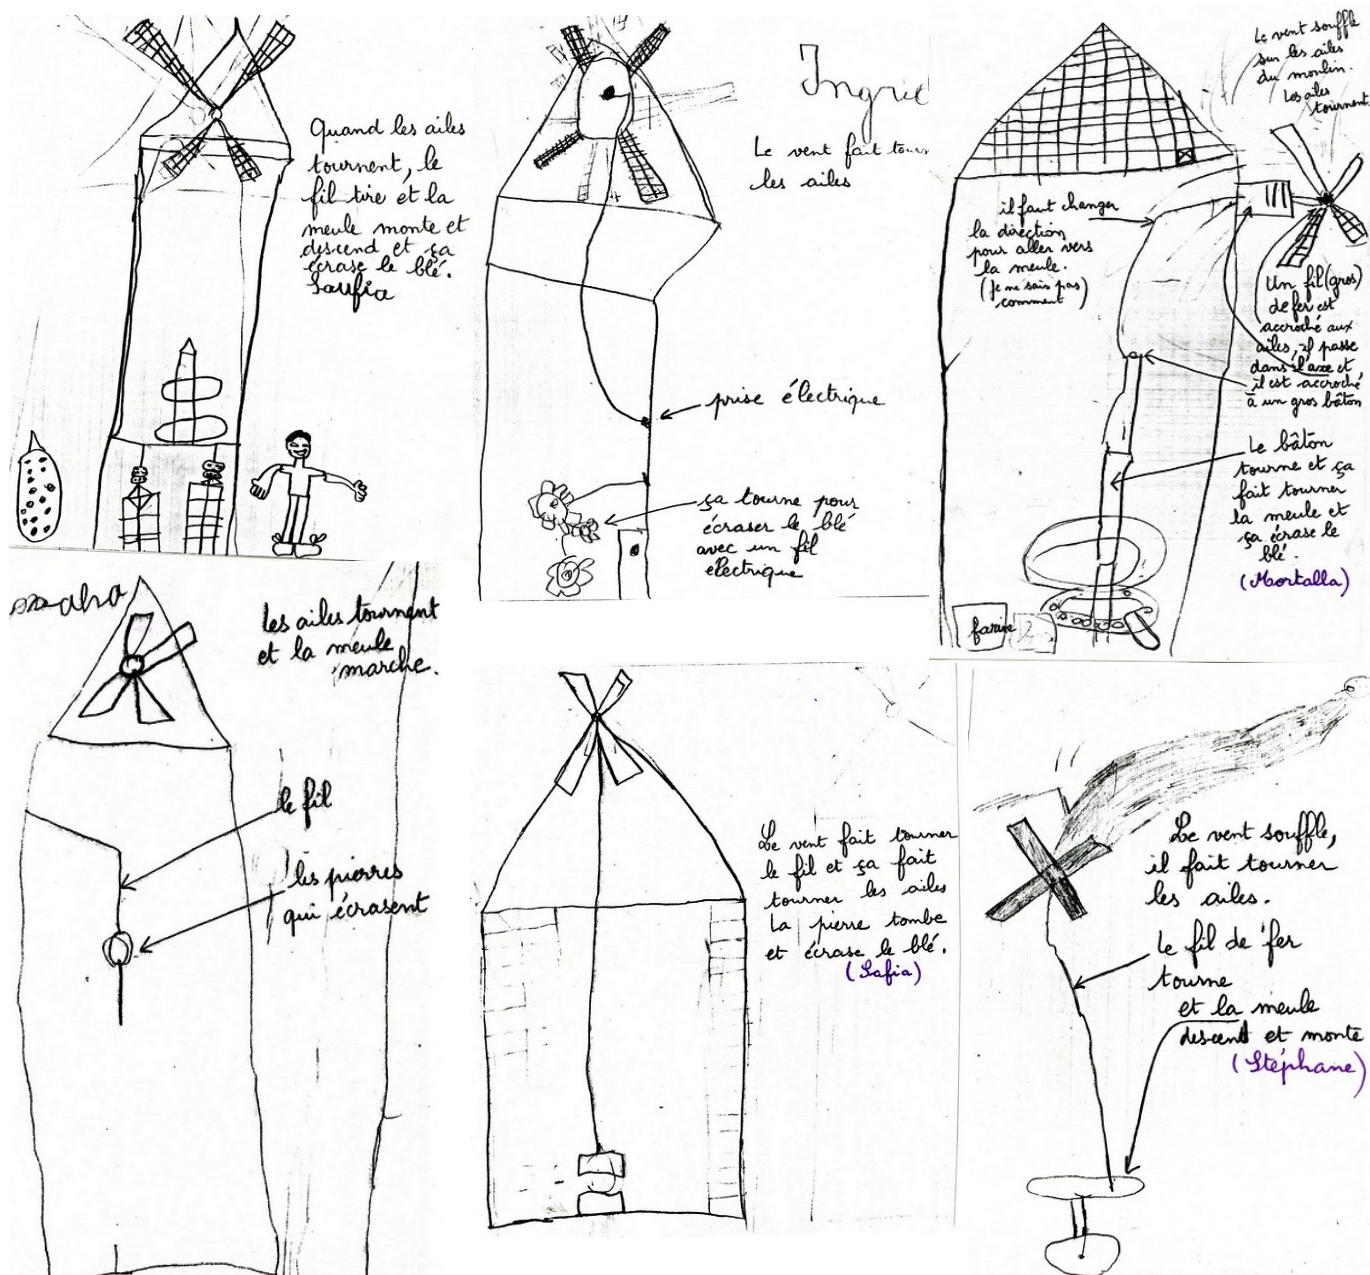 Quand les ailes
tournent, le
fil tire et la
meule monte et
descend et ça
écrase le blé.
Ingrid
Le vent fait tourn
les ailes
prise électrique
ça tourne pour
écraser le blé
avec un fil
électrique
Le vent souffle
sur les ailes
du moulin.
Les ailes
tournent
il faut changer
la direction
pour aller vers
la meule.
(Je ne sais pas
comment)
Un fil (gros)
de fer est
accroché aux
ailes, il passe
dans l'axe et
il est accroché
à un gros bâton
Le bâton
tourne et ça
fait tourner
la meule et
ça écrase le
blé.
(Mortalla)
farine
Les ailes tournent
et la meule
marche.
le fil
les pierres
qui écrasent
Le vent fait tourner
le fil et ça fait
tourner les ailes
La pierre tombe
et écrase le blé.
(Safia)
Le vent souffle,
il fait tourner
les ailes.
Le fil de fer
tourne
et la meule
descend et monte
(Stéphane)